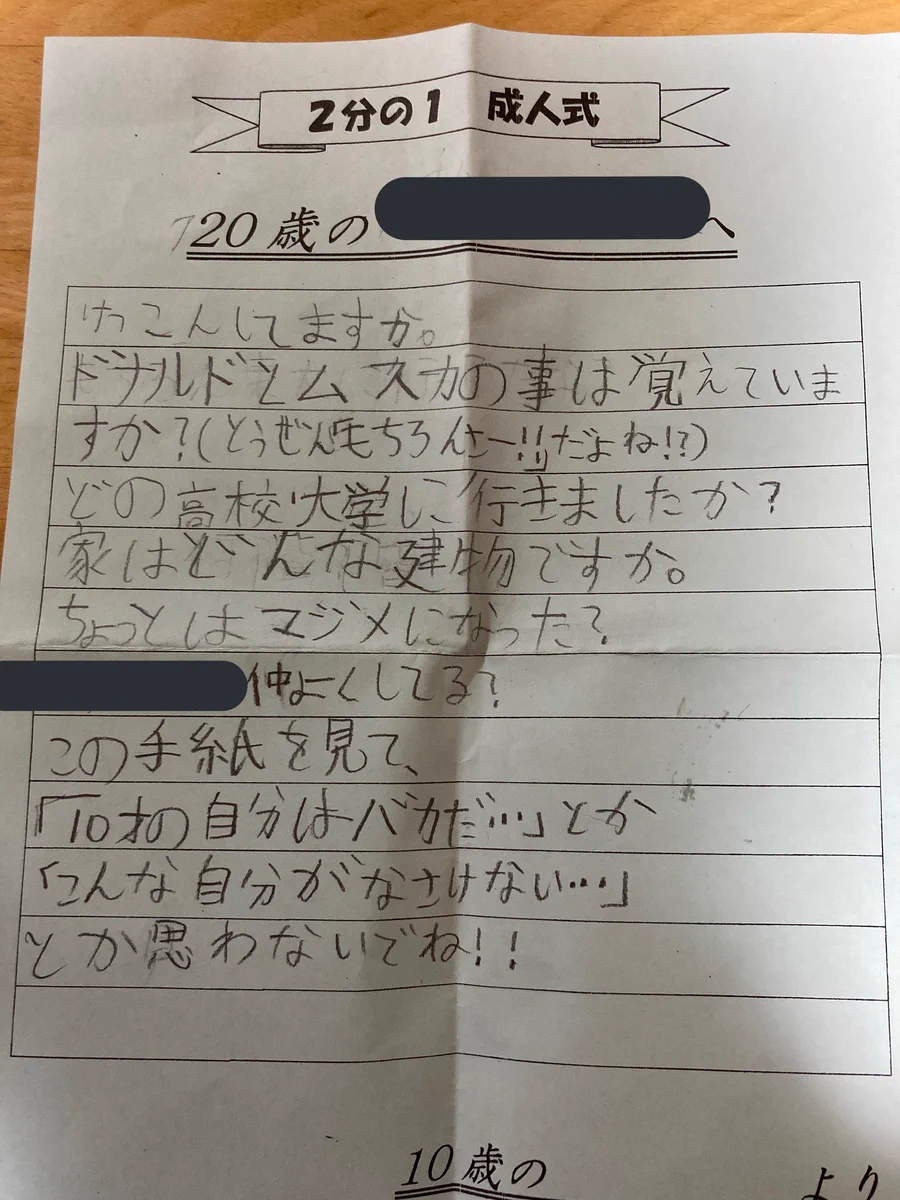 2分の1 成人式
20歳の へ
けっこんしてますか。
ドナルドとムスカの事は覚えていま
すか?(とうぜん『もちろんさー!!』だよね!?)
どの高校・大学に行きましたか?
家はどんな建物ですか。
ちょっとはマジメになった?
仲よくしてる?
この手紙を見て、
「10才の自分はバカだ…」とか
「こんな自分がなさけない…」
とか思わないでね!!
10歳の より